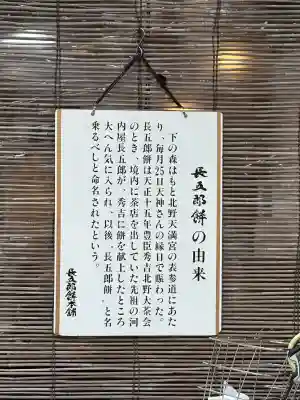 長五郎餅の由来
下の森はもと北野天満宮の表参道にあた
り、毎月25日天神さんの縁日で賑わった。
長五郎餅は天正十五年豊臣秀吉北野大茶会
のとき、境内に茶店を出していた先祖の河
内屋長五郎が、秀吉に餅を献上したところ
大へん気に入られ、以後〝長五郎餅〟と名
乗るべしと命名されたという。
長五郎餅本舗